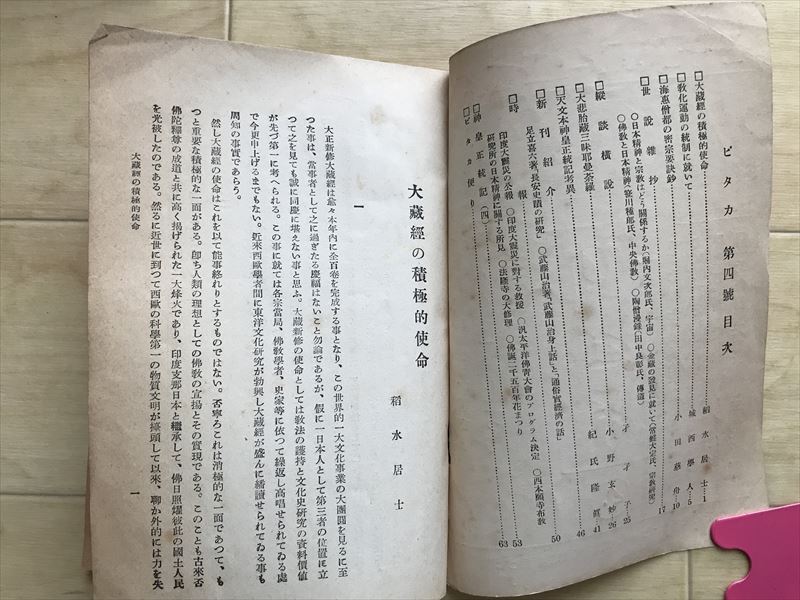 ピタカ 第四號 目次
□大藏經の積極的使命 稻水居士 1
□敎化運動の統制に就いて 城西學人 5
□海惠僧都の密宗要訣鈔 小田慈舟 10
□世說雜抄 17
○日本精神と宗敎はどう關係するか(堀内文次郎氏、宇宙) ○金藏の發見に就いて(常盤大定氏、宗敎研究)
○佛敎と日本精神(篁川種郎氏、中央佛敎) ○陶僧漫錄(田中良彰氏、傳道)
□縱談橫說 子子子 25
□大悲胎藏三昧耶曼荼羅 小野玄妙 26
□天文本神皇正統記考異 紀氏隆眞 41
□新刊紹介 46
足立喜六著「長安史蹟の硏究」 武藤山治著「武藤山治身上話」と「通俗實經濟の話」
□時報 50
印度大震災の公報 ○印度大震災に對する救援 ○汎太平洋佛靑大會のプログラム決定 ○西本願寺布敎
硏究所の日本精神に關する所見 ○法隆寺の大修理 ○佛誕二千五百年花まつり
□神皇正統記(四) 53
□ピタカ便り 63
大藏經の積極的使命
稻水居士
一
大正新修大藏經は愈々本年内に全百卷を完成する事となり、この世界的一大文化事業の大團圓を見るに至
つた事は、當事者として之に過ぎたる慶福はないこと勿論であるが、假に一日本人として第三者の位置に立
つて之を見ても誠に同慶に堪えない事と思ふ。大藏新修の使命としては敎法の護持と文化史硏究の資料價値
が先づ第一に考へられる。この事に就ては各宗當局、佛敎學者、史家等に依つて繰返し高唱せられてゐる處
で今更申上げるまでもない。近來西歐學者間に東洋文化硏究が勃興し大藏經が盛んに繙讀せられてゐる事も
周知の事實であらう。
然し大藏經の使命はこれを以て能事終れりとするものではない。否寧ろこれは消極的な一面であつて、も
つと重要な積極的な一面がある。卽ち人類の理想としての佛敎の宣揚とその實現である。このことも古來否
佛陀釋尊の成道と共に高く揚げられた一大烽火であり、印度支那日本と繼承して、佛日照燿彼此の國土人民
を光被したのである。然るに近世に到つて西歐の科學第一の物質文明が擡頭して以來、聊か外的には力を失
大藏經の積極的使命
一